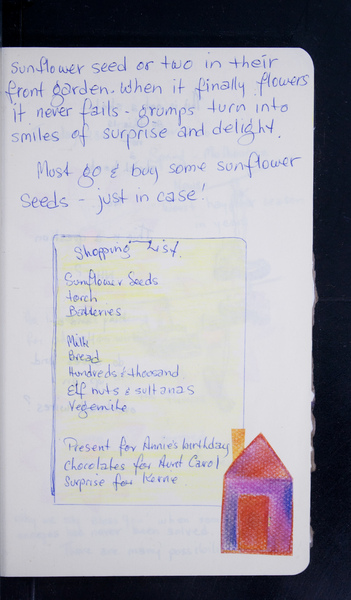 sunflower seed or two in their
front garden. When it finally flowers
it never fails - grumps turn into
smiles of surprise and delight.
Must go & buy some sunflower
seeds - just in case!
Shopping List.
Sunflower Seeds
torch
Batteries
Milk
Bread
Hundreds & thousand
Elf nuts & sultanas
Vegemite
Present for Annie's birthday
Chocolates for Aunt Carol
Surprise for